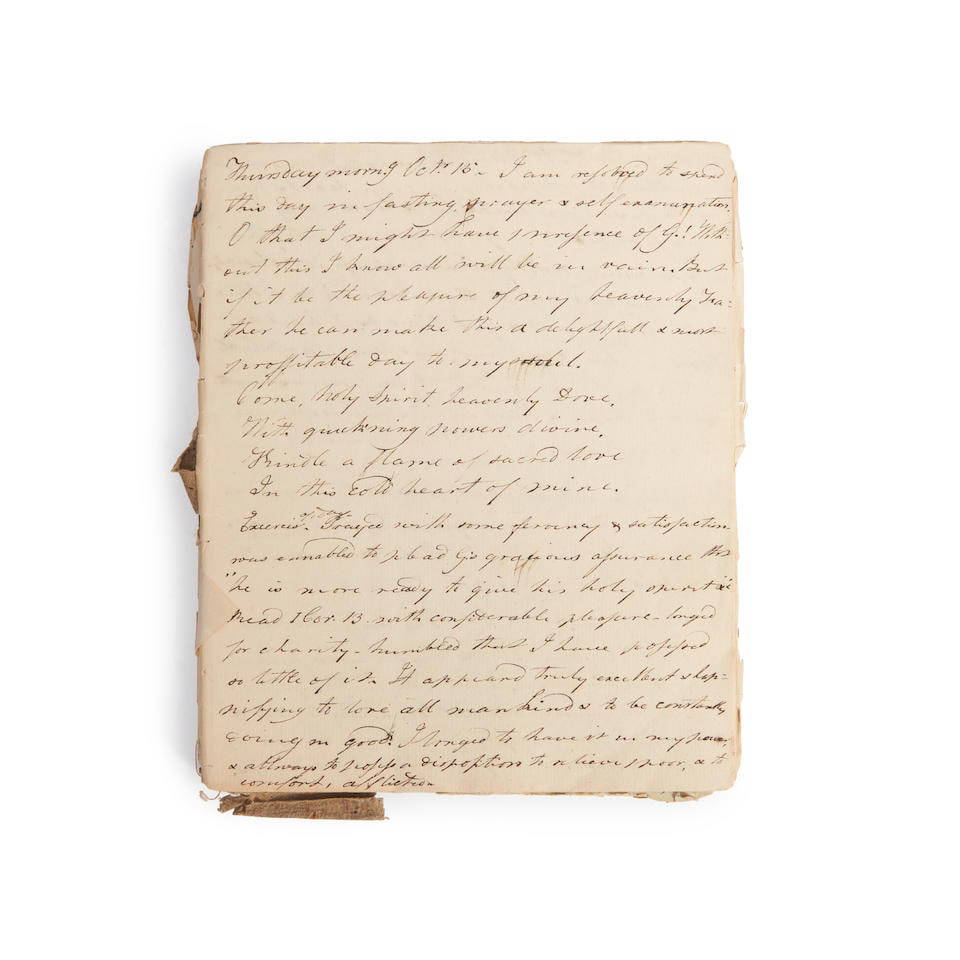 Thursday morng Octr. 15 - I am resolved to spend
this day in fasting, prayer & self examination.
O that I might have / presence of G.! With-
out this I know all will be in vain. But
if it be the pleasure of my heavenly Fa=
ther he can make this a delightfull & most
proffitable day to my soul.
Come, holy Spirit, heavenly Dove,
With quickning powers divine,
Kindle a flame of sacred love
In this cold heart of mine.
of day.
Exercis. Prayed with some fervency & satisfaction
was ennabled to plead G's gracious assurance this
"he is more ready to give his holy spirit &c"
Read 1 Cor. 13 with considerable pleasure - longed
for charity - humbled that I have possessed
so little of it. It appeard truly excellent &
nifying to love all mankind & to be constantly
doing m good. I longed to have it in my power,
& allways to possess a disposition to relieve / poor, & to
comfort / affliction